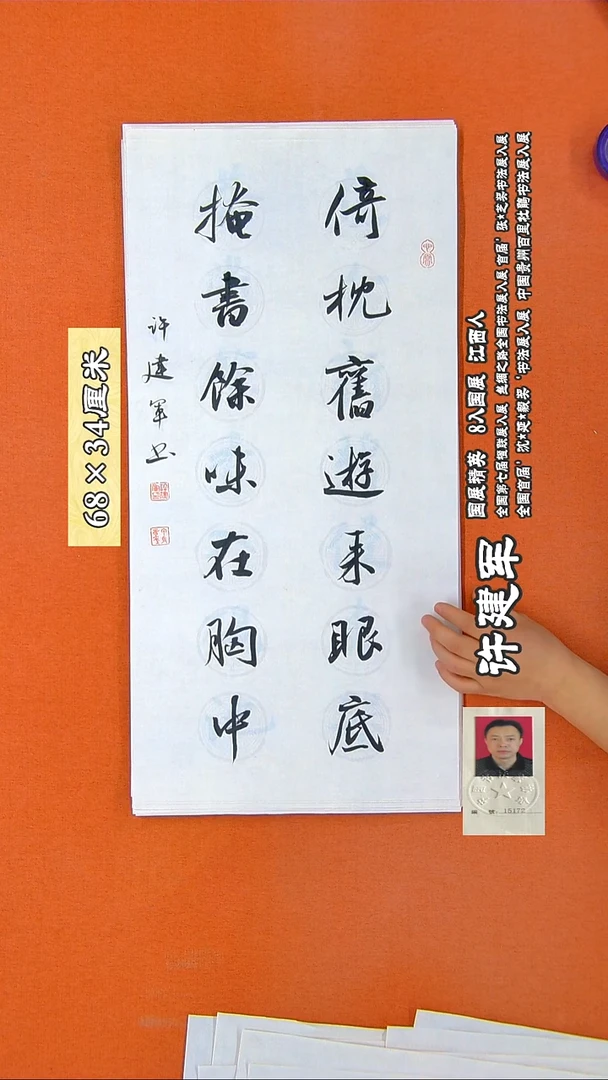 倚枕舊遊来眼底
掩書餘味在胸中
许建军书
68×34厘米
许建军
国展精英 8入国展 江西人
全国第七届楹联展入展 丝绸之路全国书法展入展 首届'张★芝奖书法展入展
全国首届'沈★延★毅奖'书法展入展 中国贵州百里杜鹃书法展入展
编 号: 15172